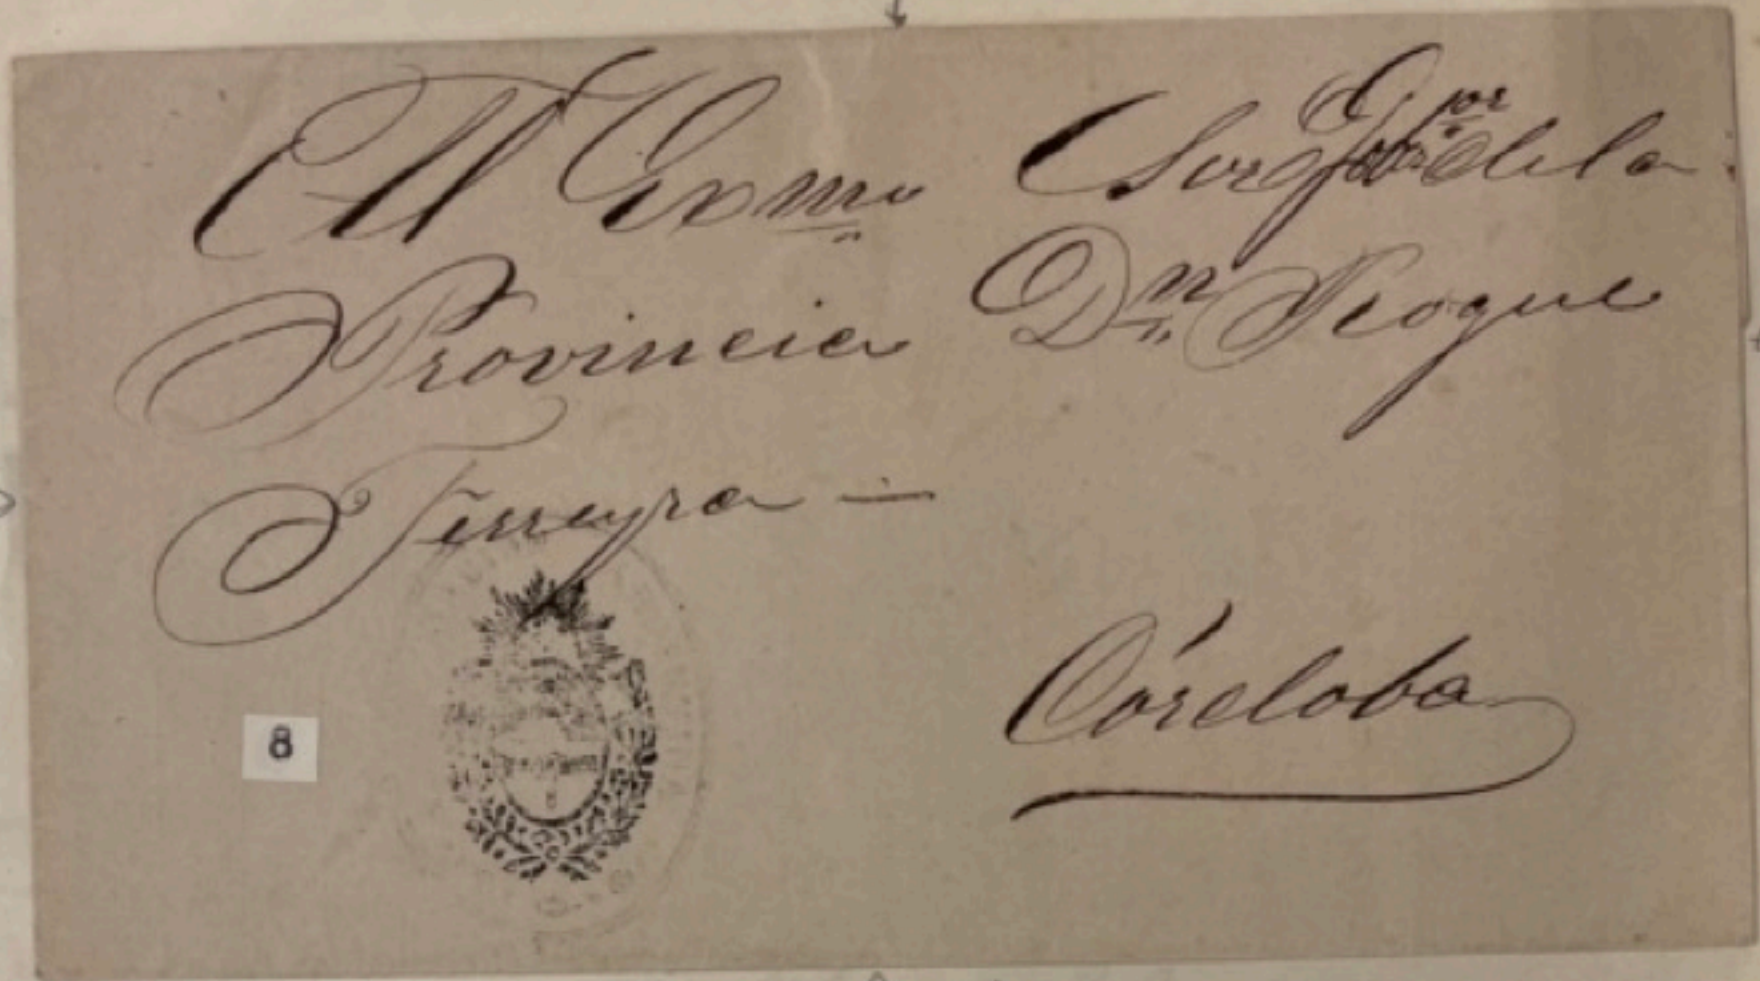 Al Exmo Sor Gor de la
Provincia Dn Roque
Ferreyra —
Córdoba
8